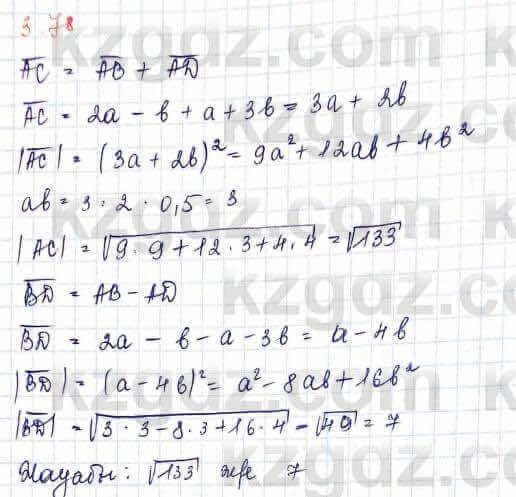 3.78
AC = AB + AD
AC = 2a - b + a + 3b = 3a + 2b
|AC| = (3a + 2b)² = 9a² + 12ab + 4b²
ab = 3 · 2 · 0,5 = 3
|AC| = √9·9 + 12·3 + 4·4 = √133
BD = AB - AD
BD = 2a - b - a - 3b = a - 4b
|BD| = (a - 4b)² = a² - 8ab + 16b²
|BD| = √3·3 - 8·3 + 16·4 = √49 = 7
Жауабы: √133 және 7
kzgdz.com